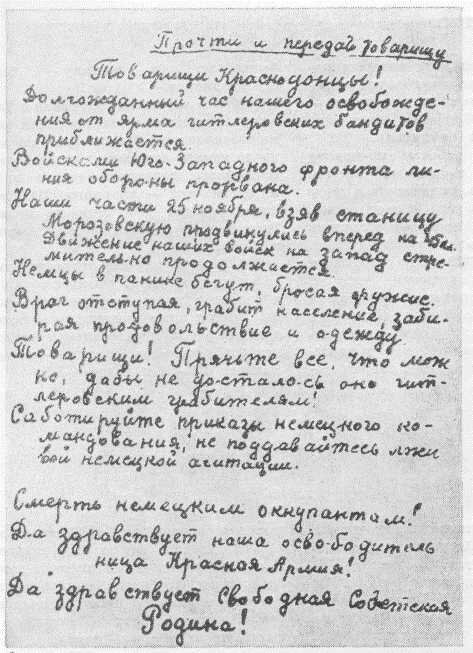 Прочти и передай товарищу
Товарищи Краснодонцы!
Долгожданный час нашего освобожде-
ния от ярма гитлеровских бандитов
приближается.
Войсками Юго-Западного фронта ли-
ния обороны прорвана.
Наши части 25 ноября, взяв станицу
Морозовскую продвинулись вперед на
Движение наших войск на запад стре-
мительно продолжается.
Немцы в панике бегут, бросая оружие.
Враг отступая, грабит население, заби-
рая продовольствие и одежду
Товарищи! Прячьте все, что мож
но, дабы не досталось оно гит-
леровским грабителям!
Саботируйте приказы немецкого ко-
мандования, не поддавайтесь лжи
вой немецкой агитации.
Смерть немецким оккупантам!
Да здравствует наша освободитель
ница Красная Армия!
Да здравствует свободная Советская
Родина!